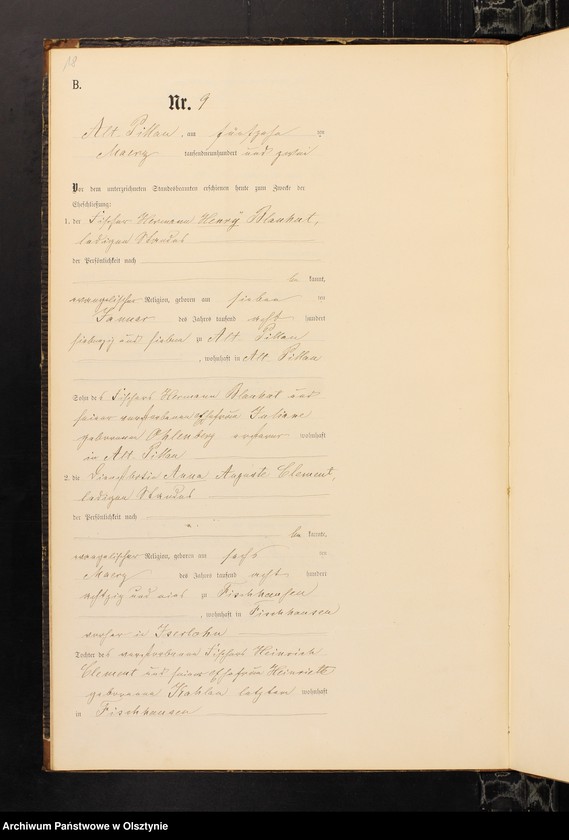 B.
Nr. 9
Alt Pillau, am fünfzehn ten
Maerz tausendneunhundert und zwei
Vor dem unterzeichneten Standesbeamten erschienen heute zum Zwecke der
Eheschließung:
1. der Fischer Hermann Henry Blankat,
ledigen Standes
der Persönlichkeit nach
be kannt,
evangelischer Religion, geboren am sieben ten
Januar des Jahres tausend acht hundert
siebenzig und sieben zu Alt Pillau
, wohnhaft in Alt Pillau
Sohn des Fischers Hermann Blankat und
seiner verstorbenen Ehefrau Juliane
geborenen Ohlenberg ersterer wohnhaft
in Alt Pillau
2. die Anna Auguste Clement,
ledigen Standes
der Persönlichkeit nach
be kannte,
evangelischer Religion, geboren am sechs ten
Maerz des Jahres tausend acht hundert
achtzig und eins zu Fischhausen
, wohnhaft in Fischhausen
vorher in Iserlohn
Tochter des verstorbenen Fischers Heinrich
Clement und seiner Ehefrau Heinriette
geborenen letztere wohnhaft
in Fischhausen
Archiwum Państwowe w Olsztynie